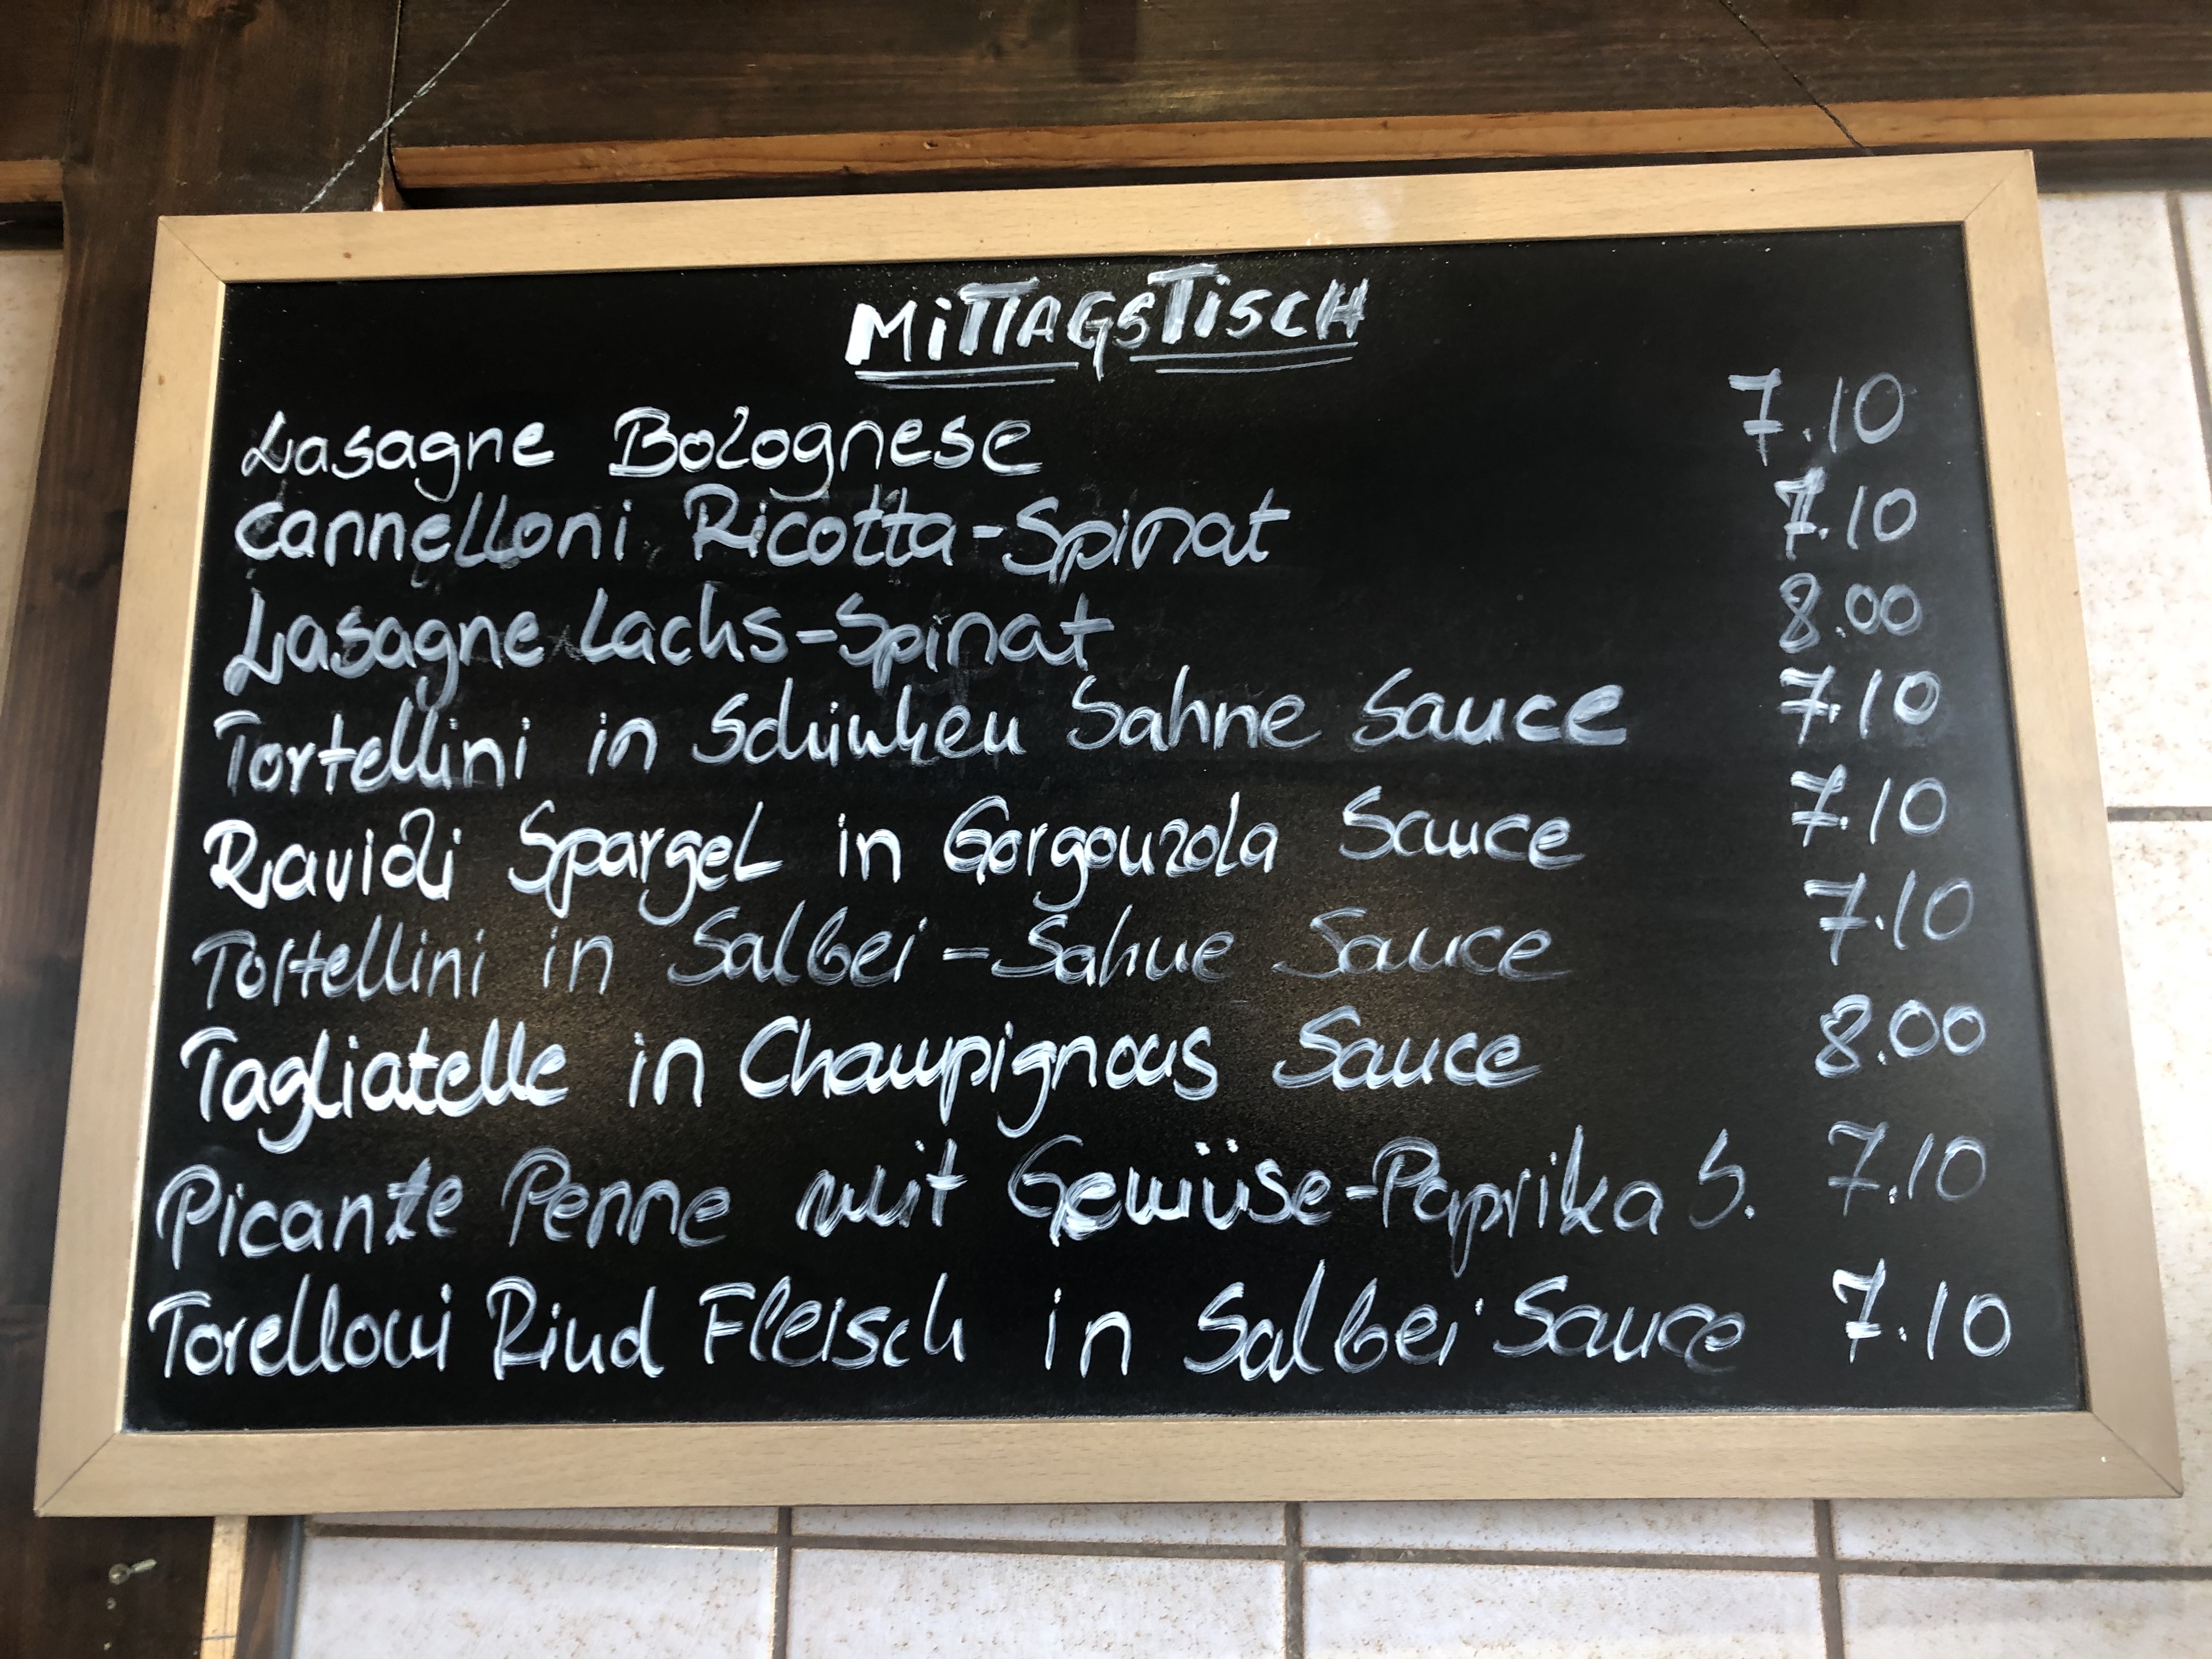 MiTTAGSTiSCH
Lasagne Bolognese 7.10
Cannelloni Ricotta-Spinat 7.10
Lasagne Lachs-Spinat 8.00
Tortellini in Schinken Sahne Sauce 7.10
Ravioli Spargel in Gorgonzola Sauce 7.10
Tortellini in Salbei-Sahne Sauce 7.10
Tagliatelle in Champignons Sauce 8.00
Picante Penne mit Gemüse-Paprika S. 7.10
Torelloni Rind Fleisch in Salbei Sauce 7.10